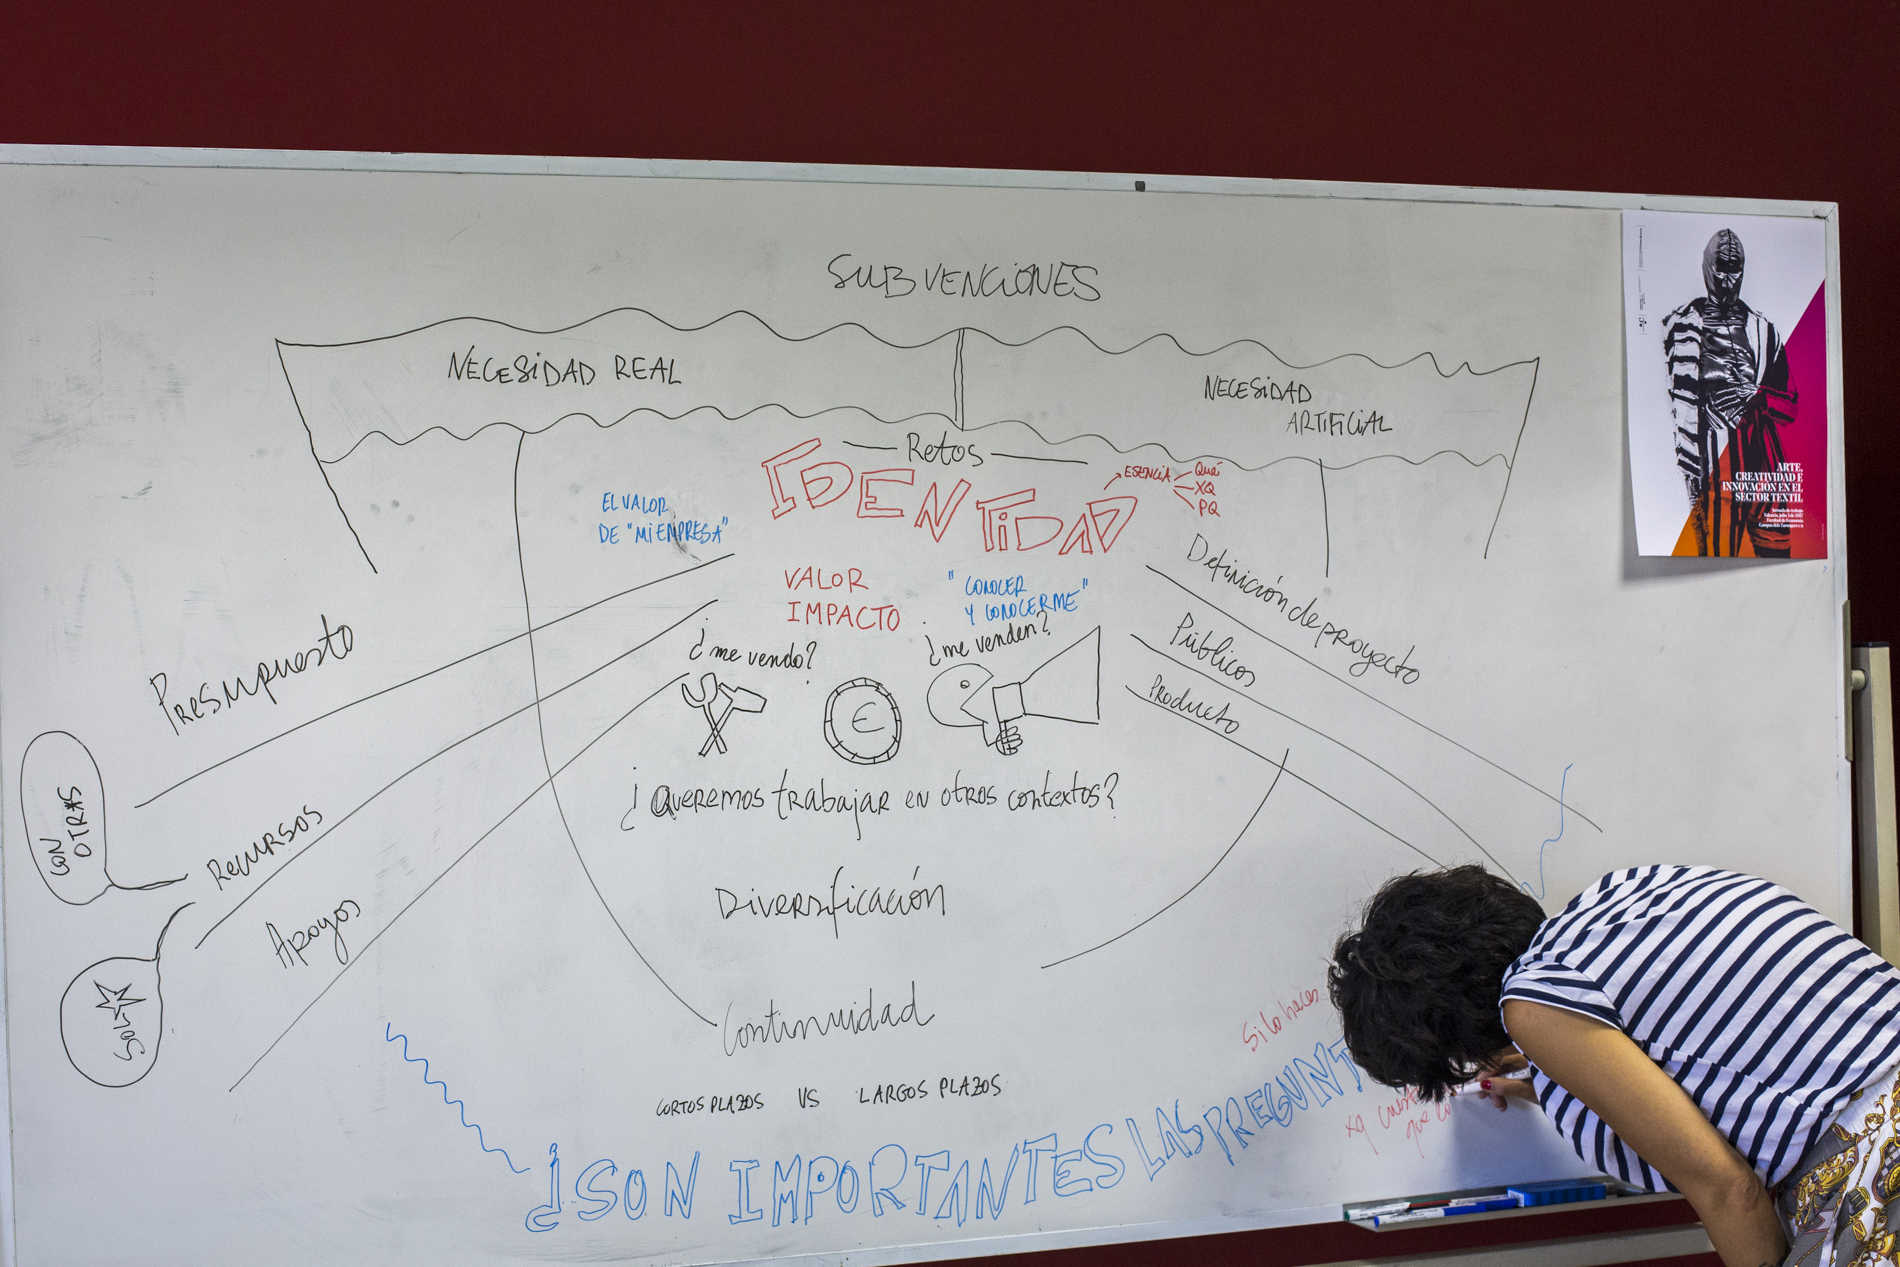 SUBVENCIONES
NECESIDAD REAL
NECESIDAD
ARTIFICIAL
Retos
IDENTIDAD
ESENCIA
Qué
XQ
PQ
EL VALOR
DE "MI EMPRESA"
VALOR
IMPACTO
"CONOCER
Y CONOCERME"
¿me vendo?
¿me venden?
€
¿Queremos trabajar en otros contextos?
Diversificación
Continuidad
CORTOS PLAZOS VS LARGOS PLAZOS
Presupuesto
Recursos
Apoyos
CON
OTR*S
SOL
Definición de proyecto
Públicos
Producto
Si lo haces
xq
que
¿SON IMPORTANTES LAS PREGUNT
ARTE,
CREATIVIDAD E
INNOVACIÓN EN EL
SECTOR TEXTIL